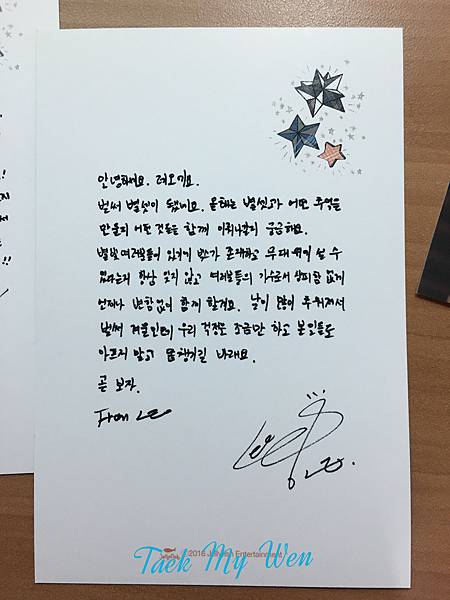 안녕하세요. 레오기요.
벌써 별셋이 됐네요. 올해는 별셋과 어떤 추억을
만들지 어떤 것들을 함께 이뤄나갈지 궁금해요.
별빛 여러분들이 있기에 빅스가 존재하고 무대 위에 설 수
있다는걸 항상 잊지 않고 여러분들의 가수로서 창피함 없게
언제나 변함없이 함께 할거요. 날이 많이 추워져서
벌써 겨울인데 우리 걱정은 조금만 하고 본인들도
아프지 말고 몸챙기길 바래요.
곧 보자.
From Leo
Leo
Leo.
©2016 Jellyfish Entertainment
Taek My Wen